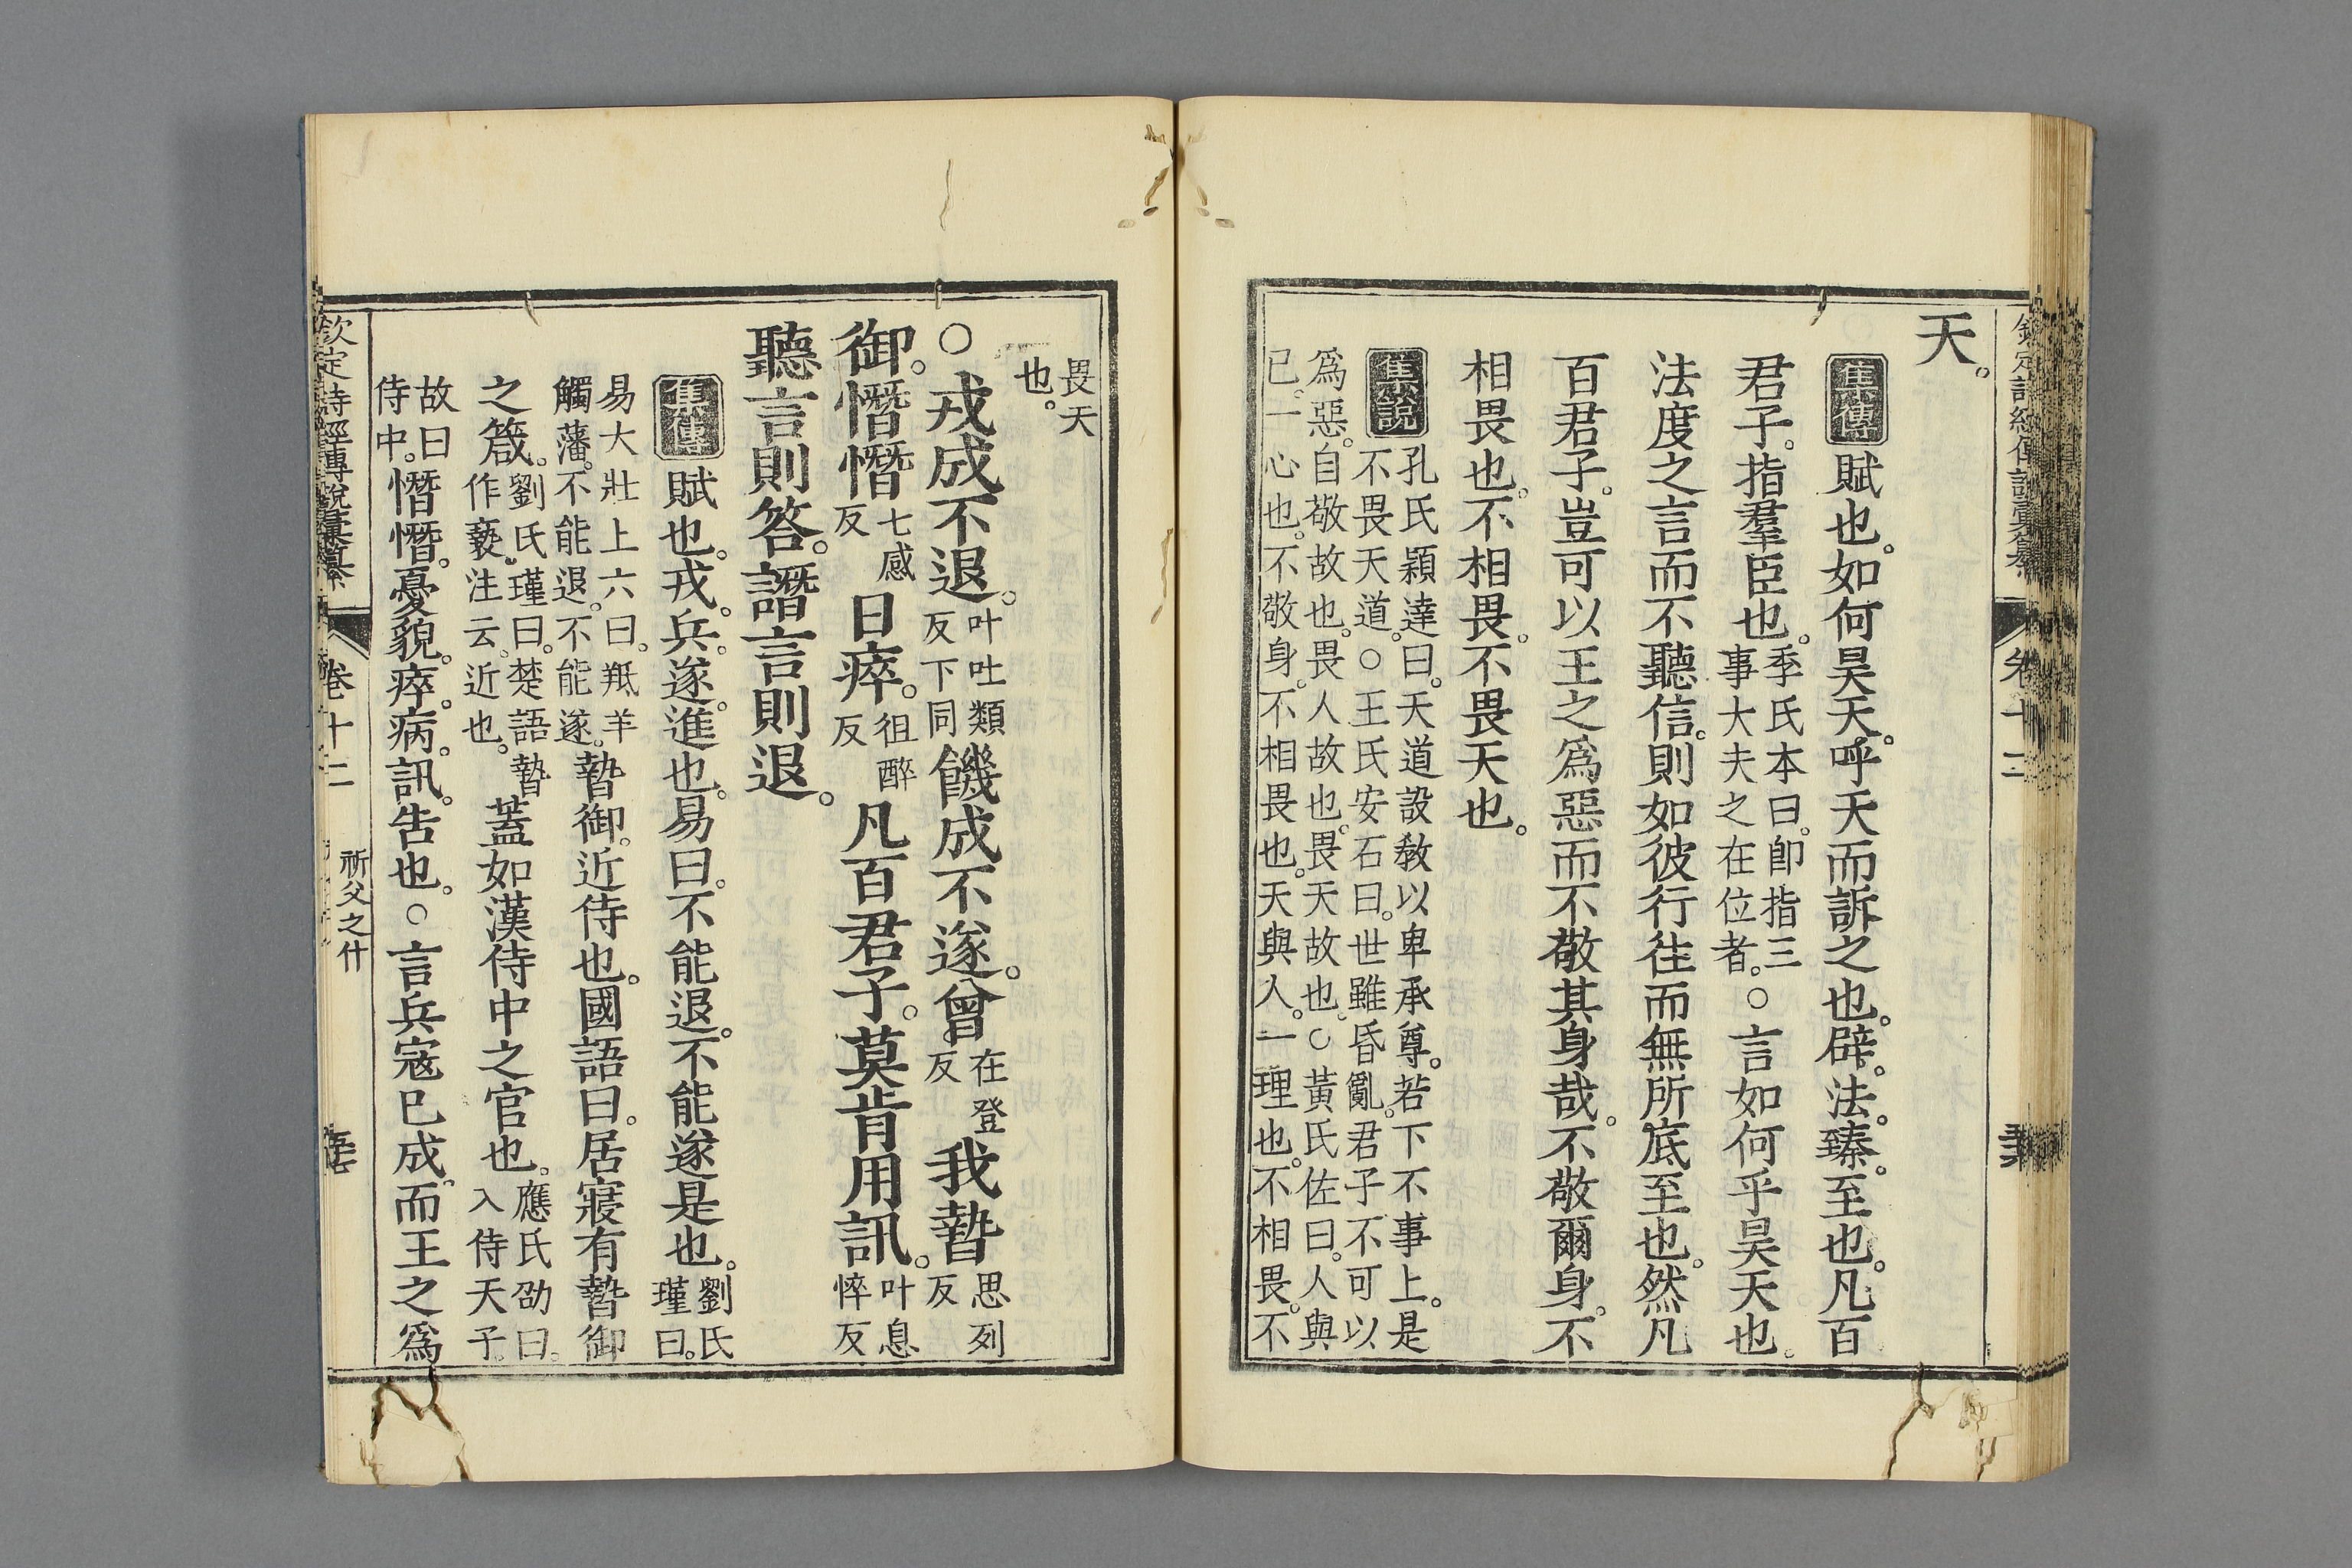 天。
集傳 賦也。如何昊天。呼天而訴之也。辟。法。臻。至也。凡百
君子。指羣臣也。季氏本曰。卽指三事大夫之在位者。○言如何乎昊天也。
法度之言而不聽信。則如彼行往而無所底至也。然凡
百君子。豈可以王之為惡而不敬其身哉。不敬爾身。不
相畏也。不相畏。不畏天也。
集說 孔氏穎達曰。天道設敎以卑承尊。若下不事上。是
不畏天道。○王氏安石曰。世雖昏亂。君子不可以
為惡。自敬故也。畏人故也。畏天故也。○黃氏佐曰。人與
已。一心也。不敬身。不相畏也。天與人。一理也。不相畏。不
畏天
也。
○戎成不退。叶吐類反下同饑成不遂。曾在登反我暬思列反
御。憯憯七感反日瘁。徂醉反凡百君子。莫肯用訊。叶息悴反
聽言則答。譖言則退。
集傳 賦也。戎。兵。遂。進也。易曰。不能退。不能遂是也。劉氏瑾曰。
易大壯上六曰。羝羊觸藩。不能退。不能遂。暬御。近侍也。國語曰。居寢有暬御
之箴。劉氏瑾曰。楚語暬作褻。注云。近也。蓋如漢侍中之官也。應氏劭曰。入侍天子。
故曰侍中。憯憯。憂貌。瘁。病。訊。告也。○言兵寇已成。而王之為
欽定詩經傳說彙纂 卷十二 祈父之什